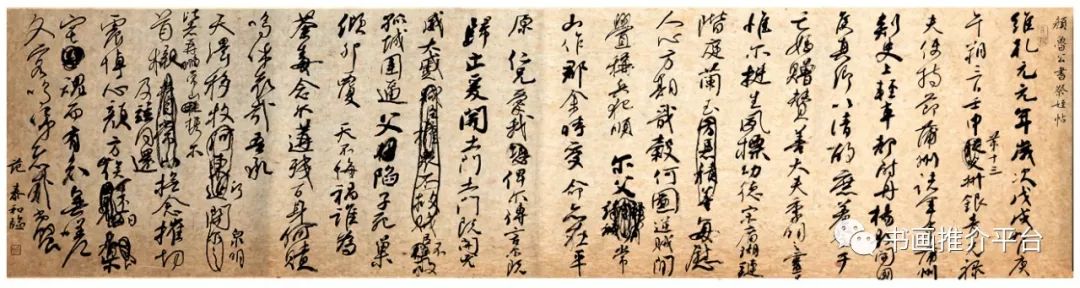 顏魯公書祭姪帖
維乾元元年歲次戊戌九月庚
午朔三日壬申第十三從父銀青光祿
夫使持節蒲州諸軍事蒲州
刺史上輕車都尉丹楊縣開國
侯真卿以清酌庶羞祭于
亡姪贈贊善大夫季明之靈
惟爾挺生夙標幼德宗廟瑚璉
階庭蘭玉方憑積善每慰
人心方期戩穀何圖逆賊閒
釁稱兵犯順爾父常
山作郡余時受命亦在平
原仁兄愛我俾爾傳言爾既
歸止爰開土門土門既開兇
威大蹙賊臣擁衆不救
孤城圍逼父陷子死巢
傾卵覆天不悔禍誰為
荼毒念爾遘殘百身何贖
嗚呼哀哉吾承
天澤移牧河關泉明
比者再陷常山携爾
首櫬及茲同還撫念摧切
震悼心顏方俟遠日
宅魂而有知無嗟
久客嗚呼哀哉尚饗
范泰和臨
书画推介平台